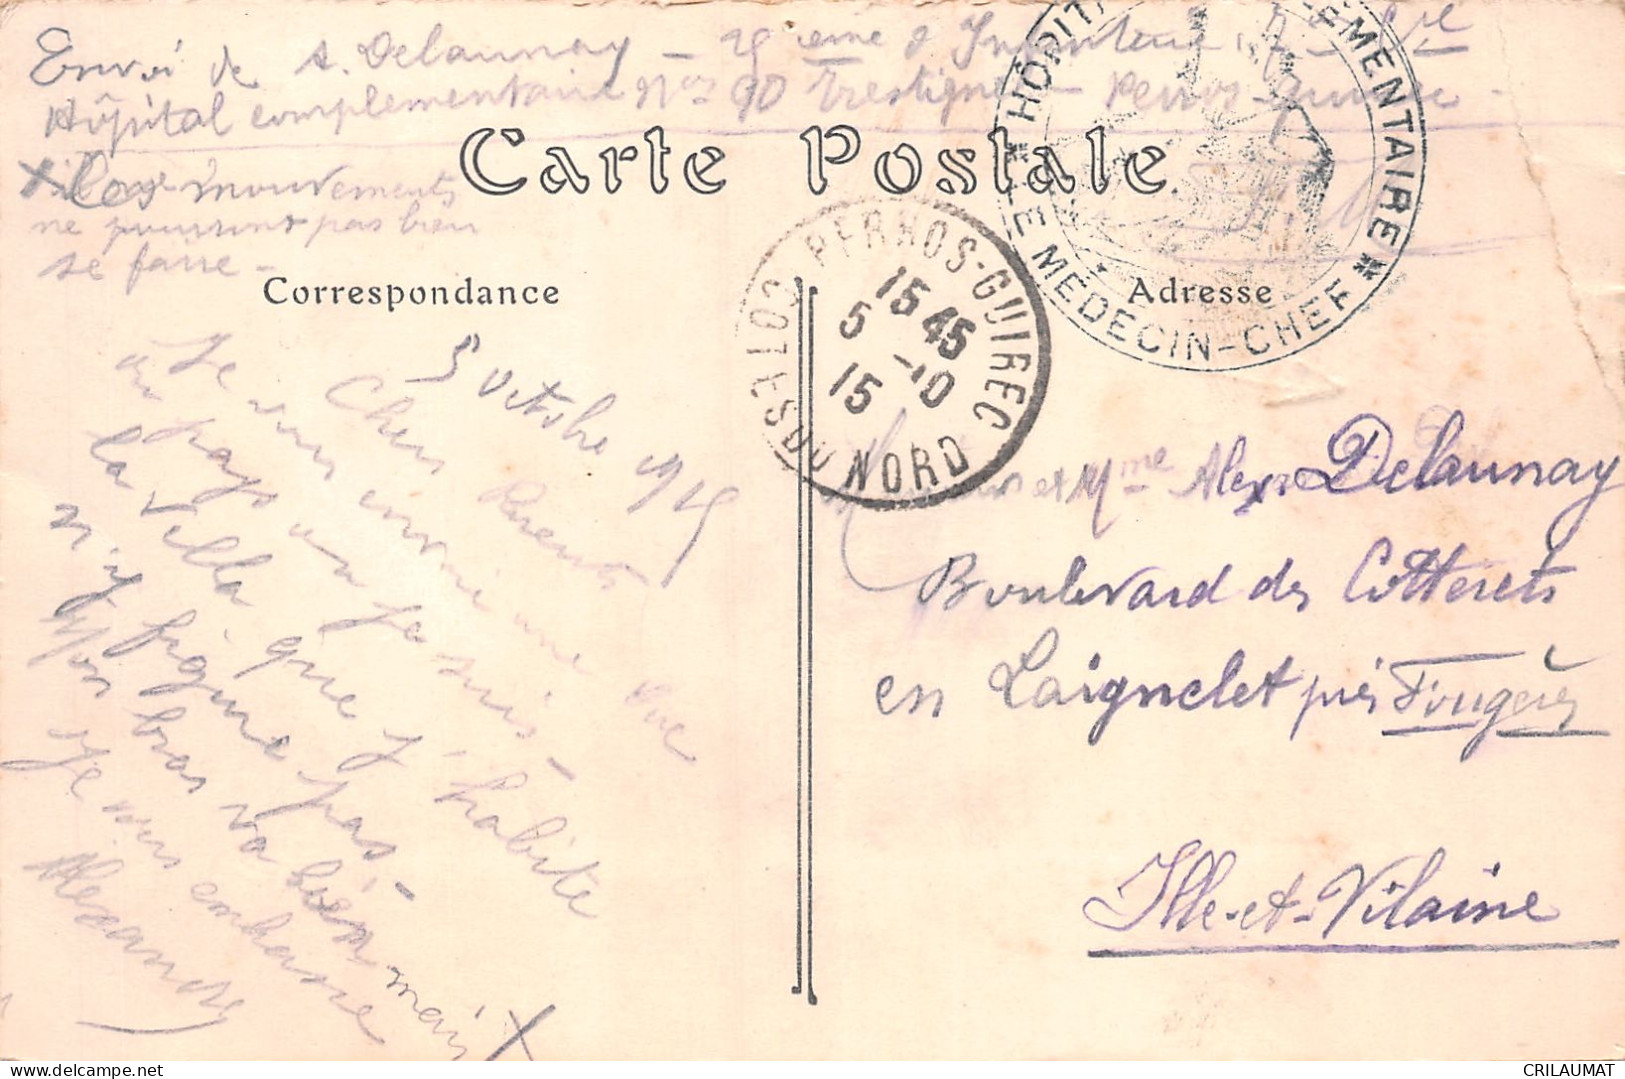 Envoi de A. Delaunay - 25ème d'Infanterie
Hôpital complémentaire Nos 90 Trestignel - Perros-Guirec -
Carte Postale
HÔPITAL COMPLÉMENTAIRE
* LE MÉDECIN-CHEF *
X les mouvements
ne pourront pas bien
se faire -
PERROS-GUIREC
15 45
5 -10
15
COTES DU NORD
Correspondance
Adresse
5 Octobre 1915
Chers Parents
Je vous envoie une vue
du pays où je suis -
la villa que j'habite
n'y figure pas. -
Mon bras va bien mais X
Je vous embrasse
Alexandre
et Mme Alexre Delaunay
Boulevard des Cotterets
en Laignelet près Fougères
Ille-et-Vilaine
delcampe.net
CRILAUMAT